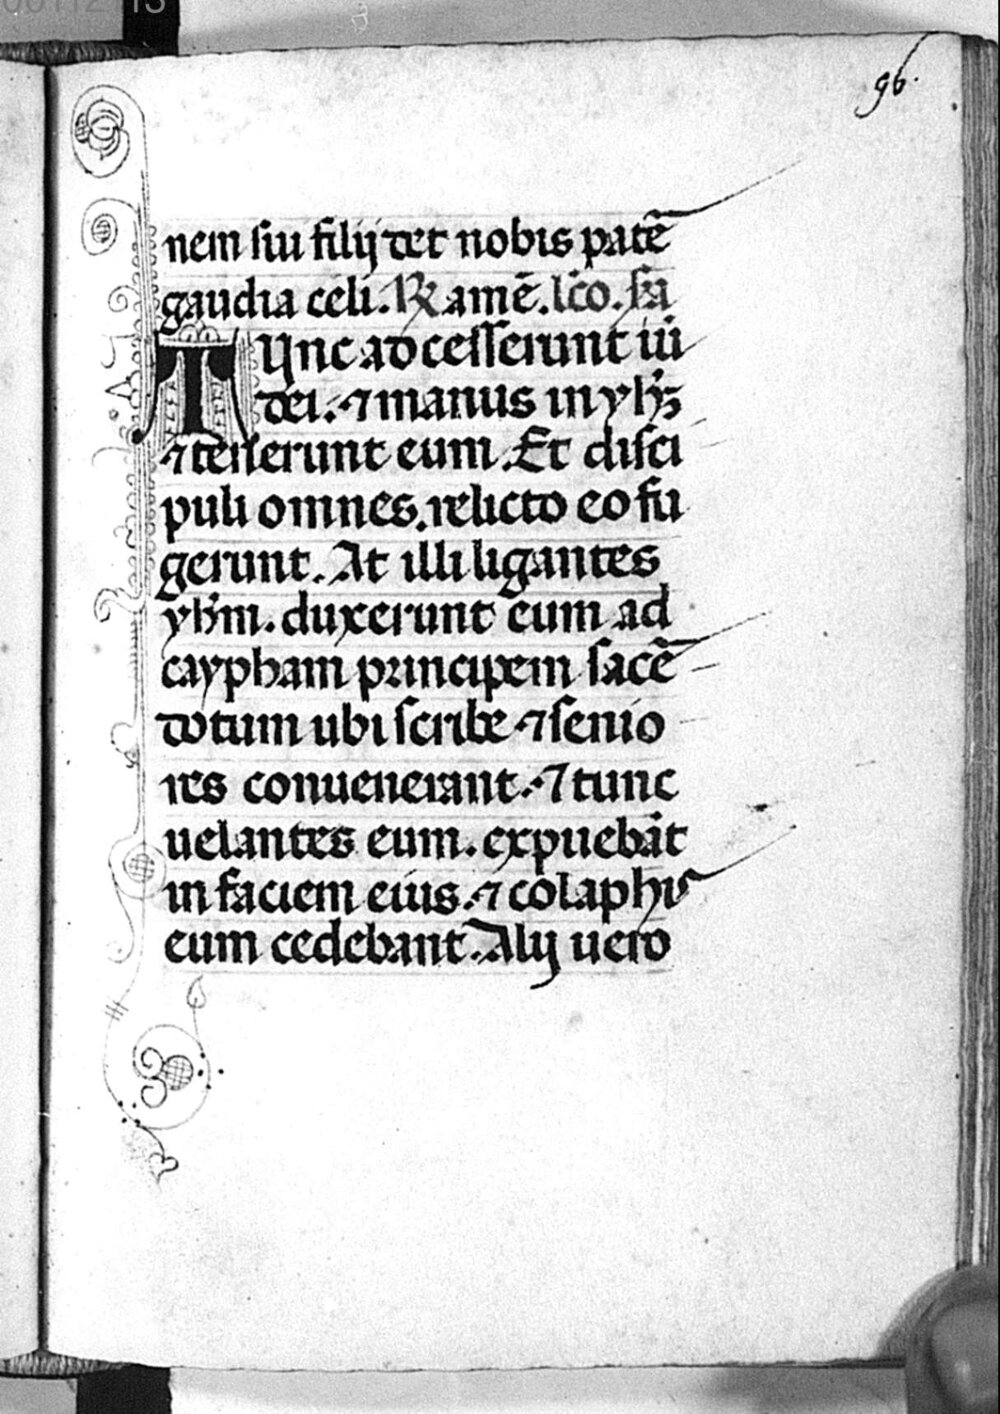 96.
nem sui filij det nobis patē
gaudia celi. ℟. amē. lc̄o. s̄a
Tunc accesserunt iu
dei. ⁊ manus in yhȝ
⁊ tenserunt eum. Et disci
puli omnes. relicto eo fu
gerunt. At illi ligantes
yhm̄. duxerunt eum ad
caypham principem sacē
dotum ubi scribe ⁊ senio
res conuenerant. ⁊ tunc
uelantes eum. expuebāt
in faciem eius. ⁊ colaphis
eum cedebant. Alij uero